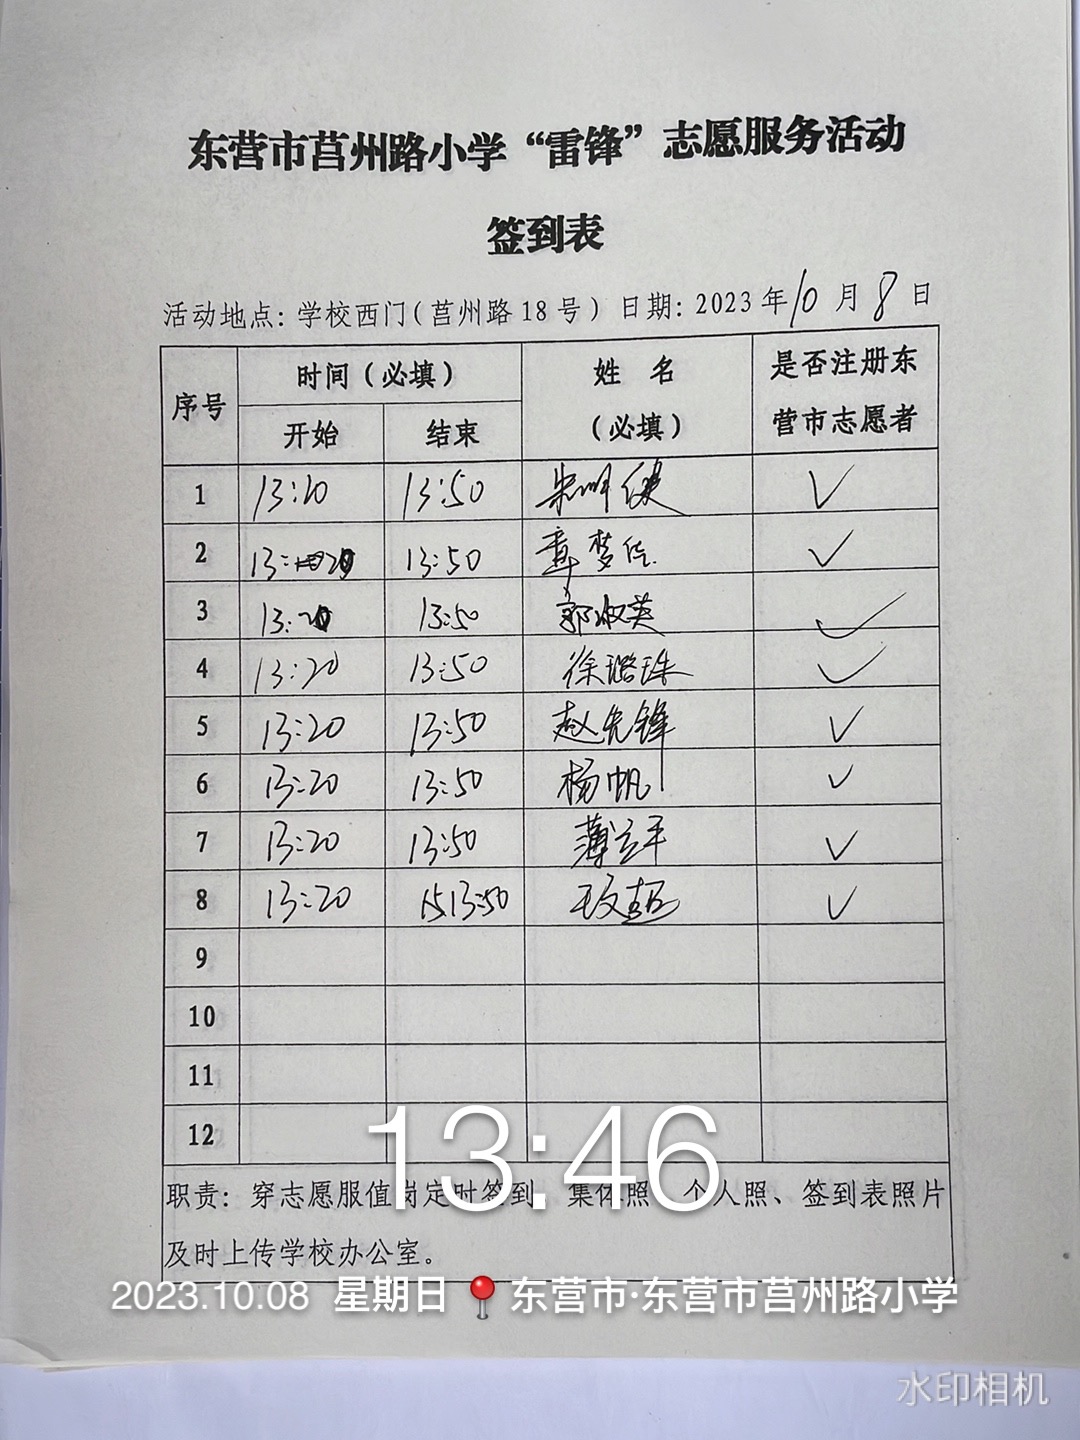 东营市莒州路小学“雷锋”志愿服务活动
签到表
活动地点：学校西门（莒州路18号） 日期：2023年10月8日
序号 时间（必填） 姓 名（必填） 是否注册东营市志愿者
开始 结束
1 13:20 13:50 朱明健 ✓
2 13:20 13:50 章梦佳 ✓
3 13:20 13:50 郭淑英 ✓
4 13:20 13:50 徐璐珠 ✓
5 13:20 13:50 赵先锋 ✓
6 13:20 13:50 杨帆 ✓
7 13:20 13:50 薄立平 ✓
8 13:20 13:50 ✓
9
10
11
12
13:46
职责：穿志愿服值岗定时签到、集体照、个人照、签到表照片
及时上传学校办公室。
2023.10.08 星期日 东营市·东营市莒州路小学
水印相机